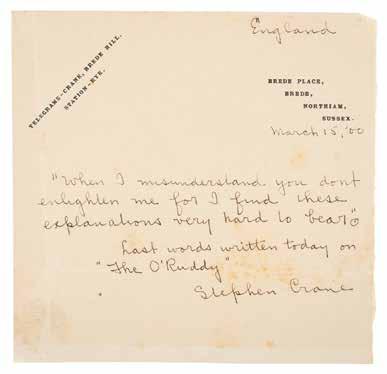 England
TELEGRAMS—CRANE, BREDE HILL.
STATION—RYE.
BREDE PLACE,
BREDE,
NORTHIAM,
SUSSEX.
March 15, '00
"When I misunderstand you don't
enlighten me for I find these
explanations very hard to bear"
Last words written today on
"The O'Ruddy"
Stephen Crane